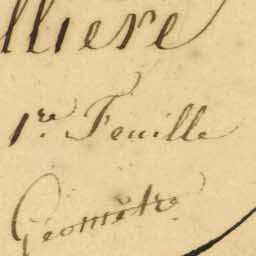 lliere
1re. Feuille
Géomètre